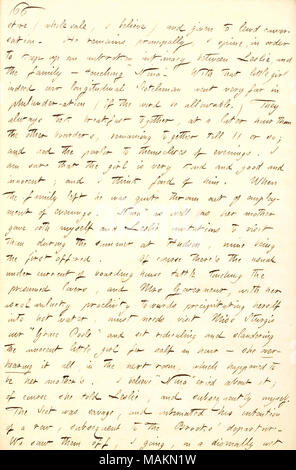 store, (wholesale, I believe) and given to lewd conver-
sation. He remains principally, I opine, in order
to keep up an intimacy between Leslie, and
the family — touching Nina. With that little girl
indeed our longitudinal Scotchman went very far in
philander-ation, (if the word be allowable.) They
always took breakfast together, at a later hour than
the other boarders, remaining together till 11 or so,
and had the parlor to themselves of evenings. I
am sure that the girl is very kind and good and
innocent, and I think fond of him. When
the family left he was quite thrown out of employ-
ment of evenings. Nina as well as her mother
gave both myself and Leslie invitations to visit
them during the summer at Hudson, mine being
the first offered. Of course there's the usual
under current of boarding house talk touching the
presumed lovers, and Mrs. Gouverneur, with her
usual unlucky proclivity towards precipitating herself
into hot water must needs visit Miss Sturgis
our "Grace Poole" and sit ridiculing and slandering
the innocent little girl for half an hour — she over-
hearing it all in the next room, which happened to
be her mother's. I believe Nina cried about it,
of course she told Leslie, and subsequently myself.
The Scot was savage, and intimated his intention
of a row, subsequent to the Brooks' departure.
We saw them off, I going, in a dismally wet
MAKN1W